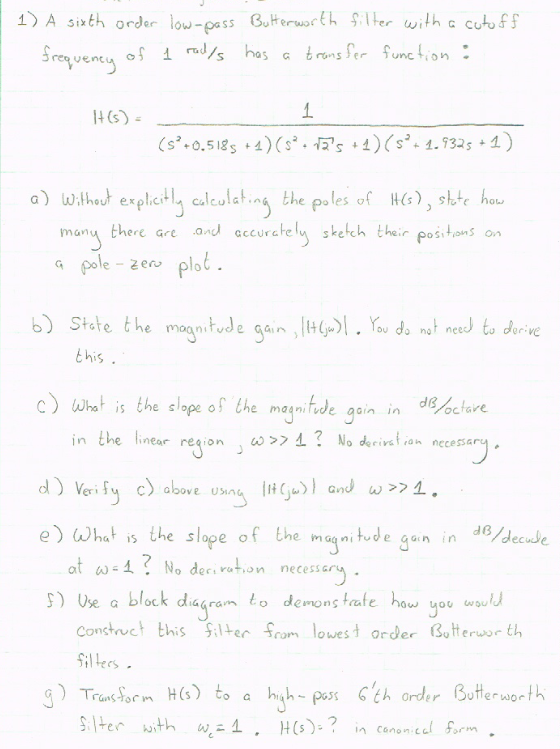 1) A sixth order low-pass Butterworth filter with a cutoff
frequency of 1 rad/s has a transfer function :
H(s) = 1 / (s²+0.518s +1)(s²+√2's +1)(s²+1.932s +1)
a) Without explicitly calculating the poles of H(s), state how
many there are and accurately sketch their positions on
a pole-zero plot.
b) State the magnitude gain, |H(jω)|. You do not need to derive
this.
c) What is the slope of the magnitude gain in dB/octave
in the linear region, ω>>1? No derivation necessary.
d) Verify c) above using |H(jω)| and ω>>1.
e) What is the slope of the magnitude gain in dB/decade
at ω=1? No derivation necessary.
f) Use a block diagram to demonstrate how you would
construct this filter from lowest order Butterworth
filters.
g) Transform H(s) to a high-pass 6'th order Butterworth
filter with ω_c=1. H(s)=? in canonical form.